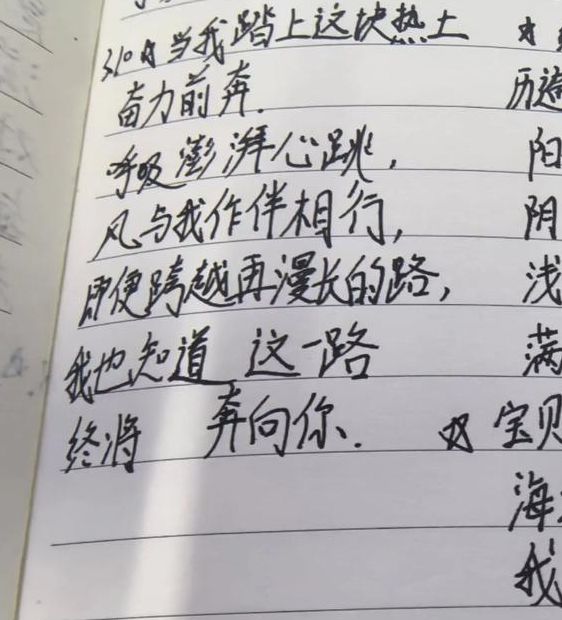 310 当我踏上这块热土
奋力前奔.
呼吸澎湃心跳,
风与我作伴相行,
即便跨越再漫长的路,
我也知道 这一路
终将 奔向你.
历遍
阳
阴
浅
满
宝贝
海
我